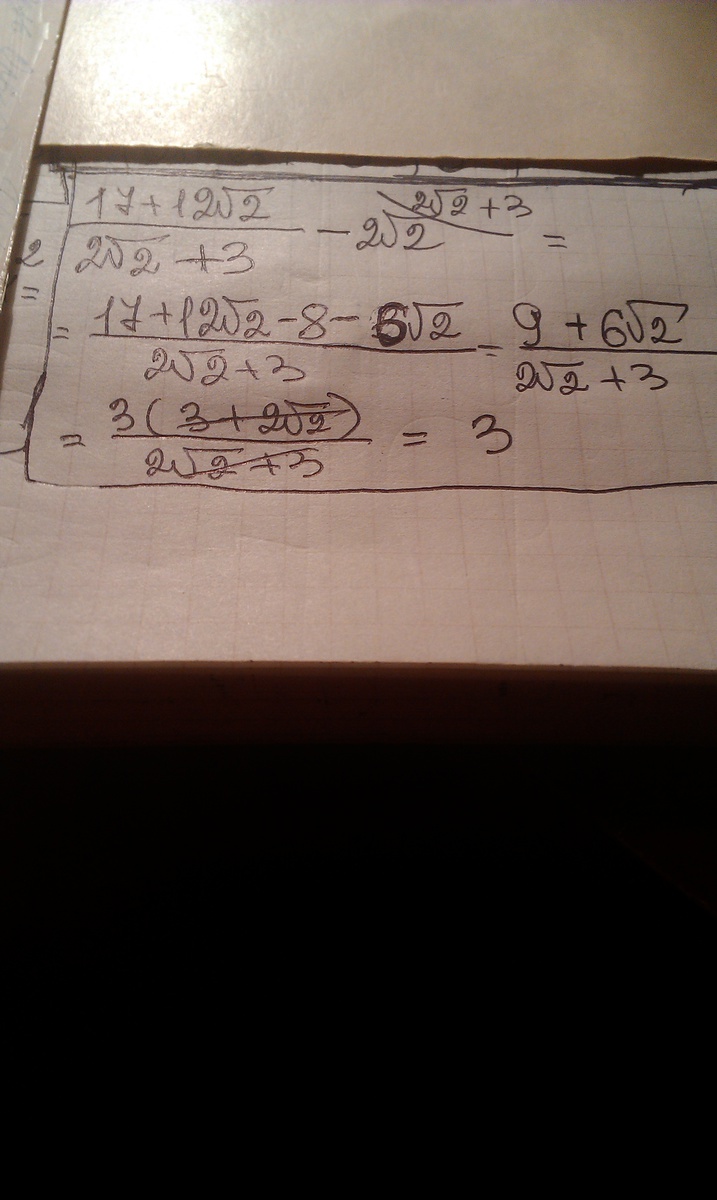 17+12√2 / 2√2 +3 − 2√2 2√2 +3 =
2
=
= 17+12√2 -8- 6√2 / 2√2+3 = 9 + 6√2 / 2√2 +3
= 3(3+2√2) / 2√2+3 = 3